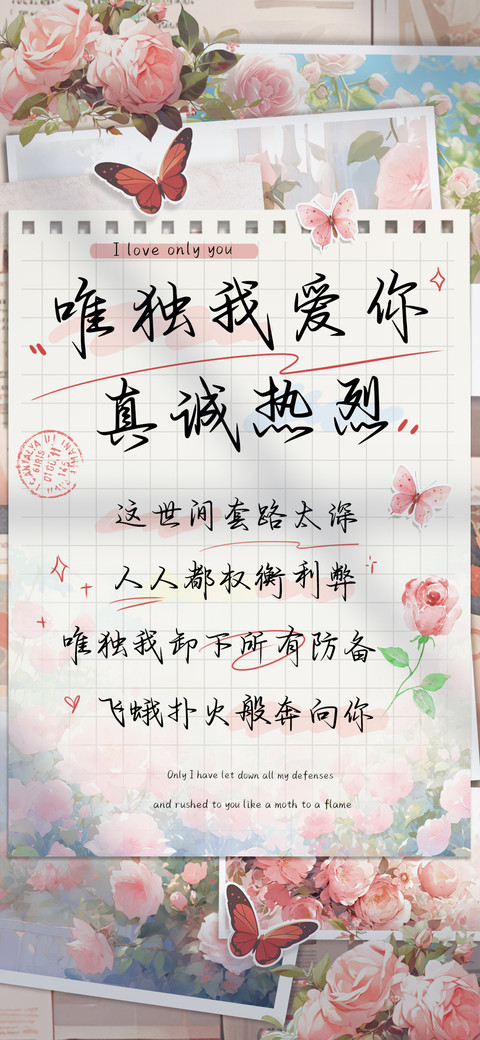 I love only you
唯独我爱你
真诚热烈
这世间套路太深
人人都权衡利弊
唯独我卸下所有防备
飞蛾扑火般奔向你
Only I have let down all my defenses
and rushed to you like a moth to a flame